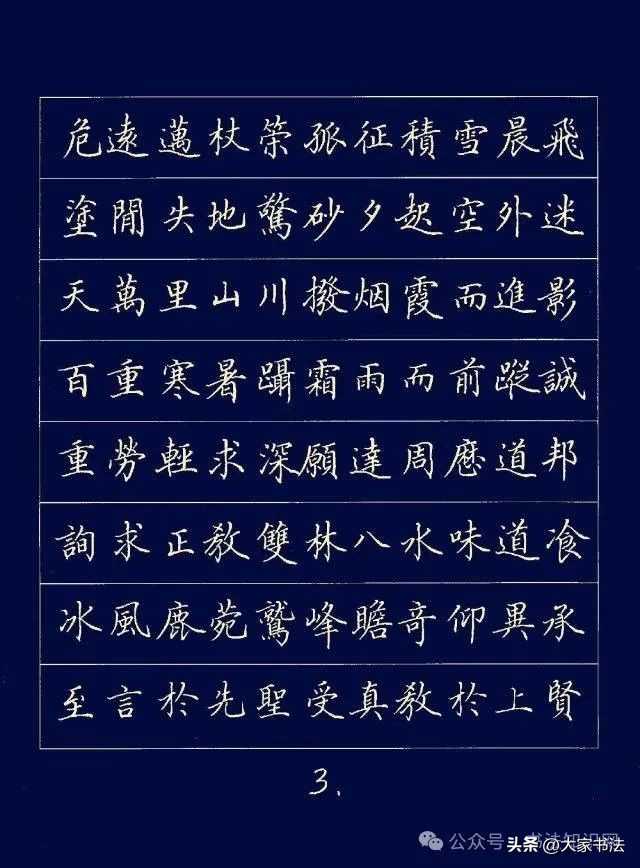 危遠邁杖筞孤征積雪晨飛
塗閒失地驚砂夕起空外迷
天萬里山川撥烟霞而進影
百重寒暑躡霜雨而前蹤誠
重勞輕求深願達周歷道邦
詢求正教雙林八水味道飡
冰風鹿菀鷲峰瞻奇仰異承
至言於先聖受真教於上賢
3.
公众号·书法知识网
头条@大家书法